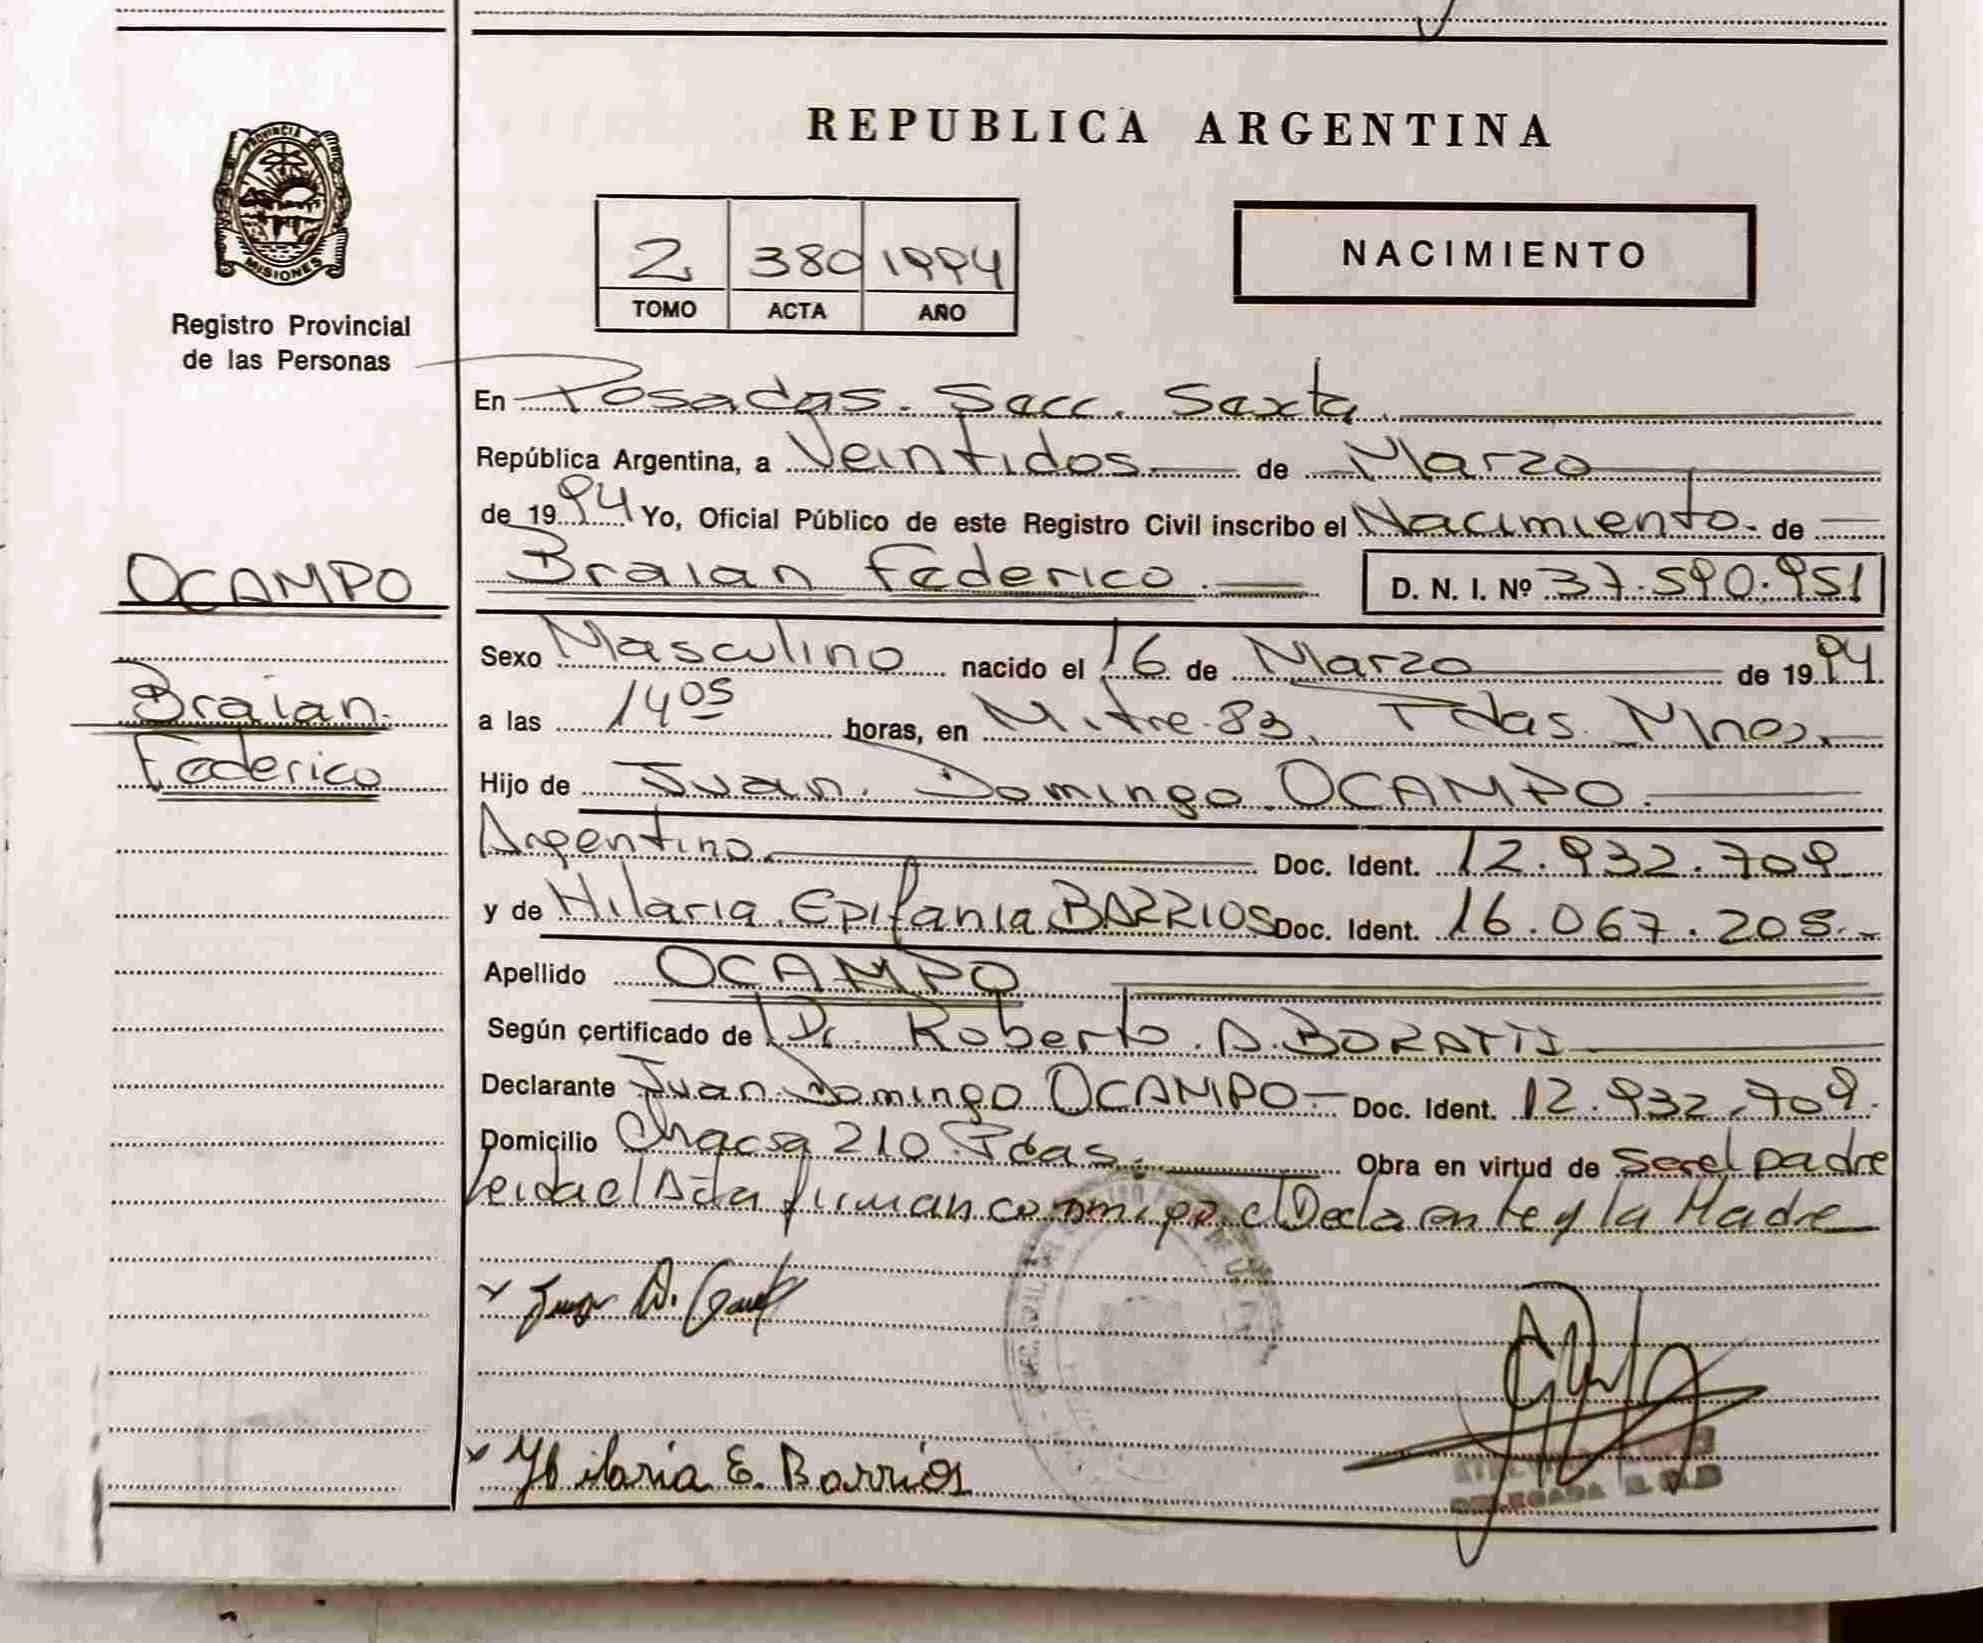 REPUBLICA ARGENTINA
PROVINCIA DE
MISIONES
Registro Provincial
de las Personas
2 380 1994
TOMO ACTA AÑO
NACIMIENTO
En Posadas. Secc. Sexta.
República Argentina, a Veintidos de Marzo
de 1994 Yo, Oficial Público de este Registro Civil inscribo el Nacimiento. de
OCAMPO
Braian Federico. D. N. I. Nº 37.590.951
Sexo Masculino nacido el 16 de Marzo de 1994
Braian.
a las 14 05 horas, en Mitre 83, Pdas. Mnes.
Federico
Hijo de Juan. Domingo. OCAMPO.
Argentino. Doc. Ident. 12.932.709
y de Hilaria. Epifania BARRIOS Doc. Ident. 16.067.205.-
Apellido OCAMPO
Según certificado de Dr. Roberto. A. BORATTI
Declarante Juan Domingo OCAMPO- Doc. Ident. 12.932.709.
Domicilio Chacra 210. Pdas. Obra en virtud de ser el padre
leida el Acta firman conmigo el Declarante y la Madre
x Juan D.
x Hilaria E. Barrios
DELEGADA